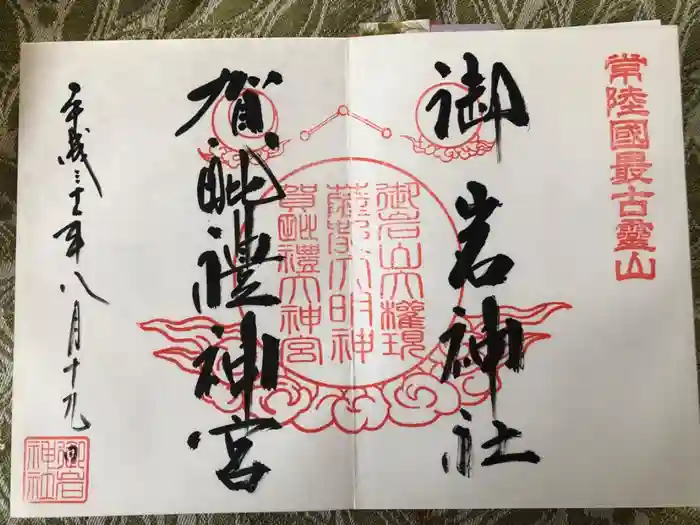 常陸國最古靈山
御岩神社
御岩山大權現
薩都大明神
賀毗禮大神宮
賀毗禮神宮
平成三十年八月十九日
御岩神社